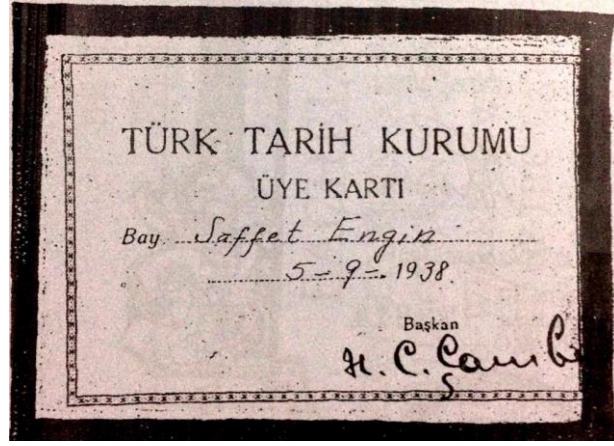 TÜRK TARİH KURUMU
ÜYE KARTI
Bay Saffet Engin
5-9-1938
Başkan
H. C. Çamb